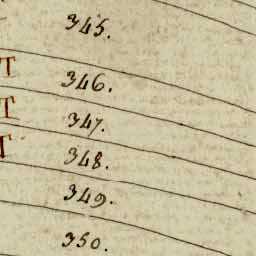 345.
T 346.
T 347.
T 348.
349.
350.